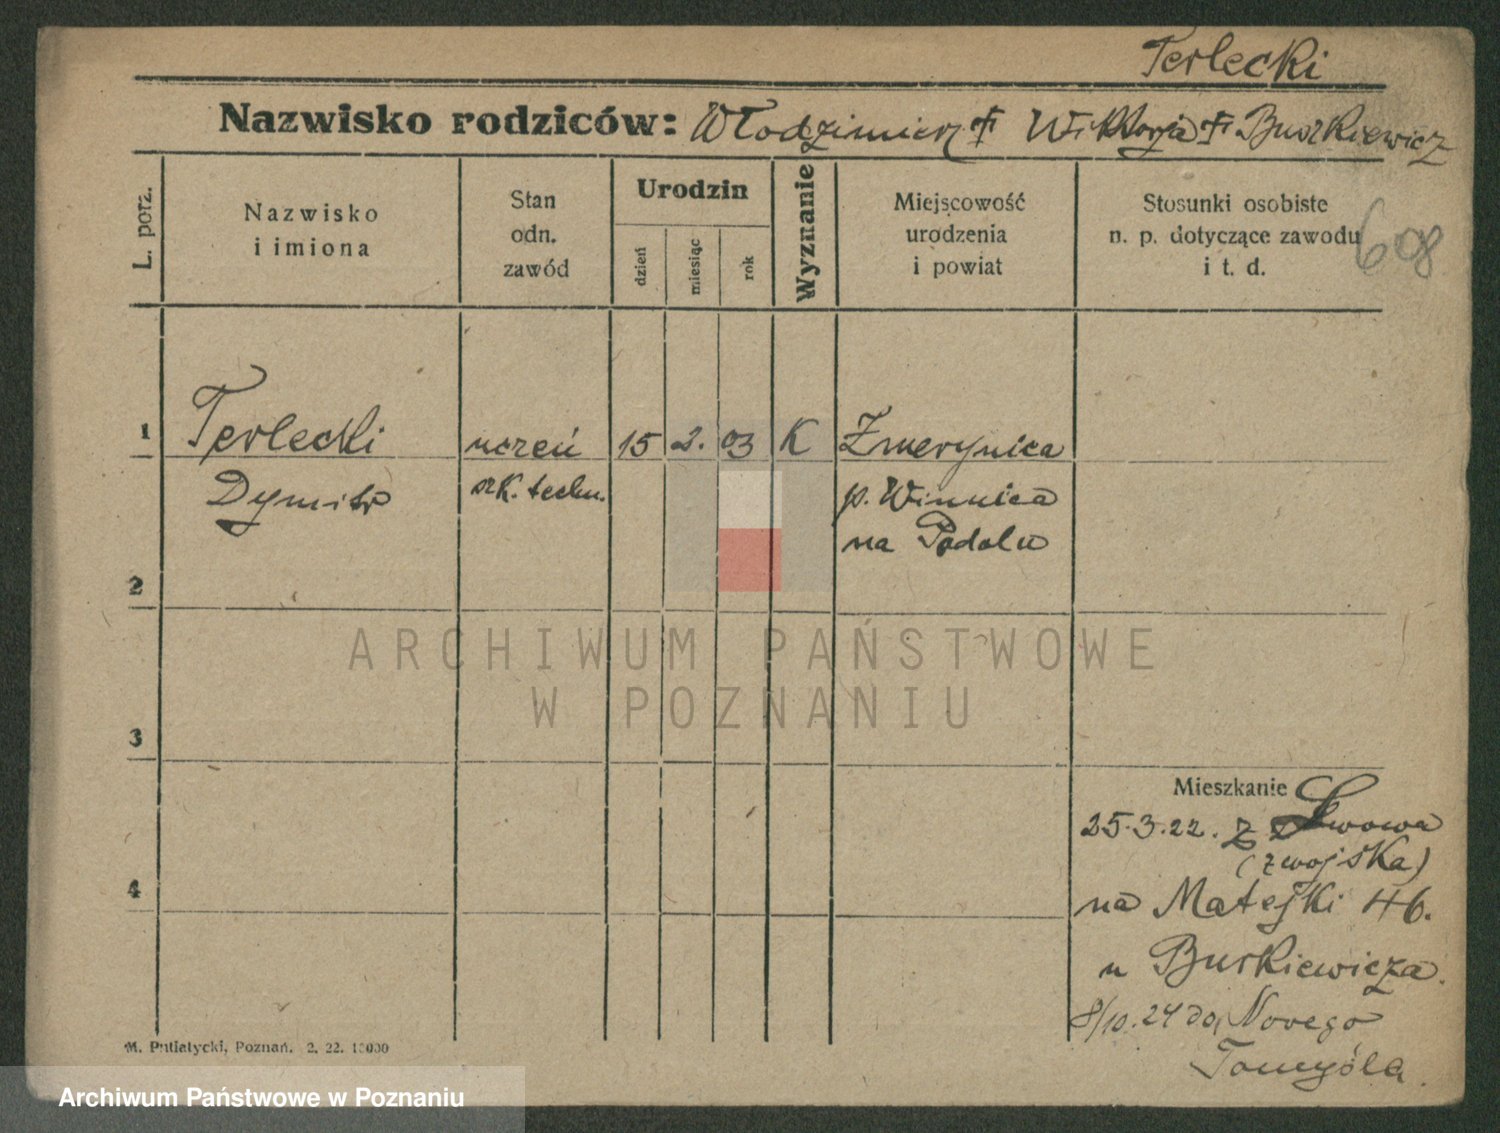 Terlecki
Nazwisko rodziców: Włodzimierz † Wiktorja † Buszkiewicz
L. porz.
Nazwisko
i imiona
Stan
odn.
zawód
Urodzin
dzień
miesiąc
rok
Wyznanie
Miejscowość
urodzenia
i powiat
Stosunki osobiste
n. p. dotyczące zawodu
i t. d.
608
1 Terlecki uczeń 15 2. 03 K Żmerynica
Dymitr szk. techn. p. Winnica
na Podolu
2
3
4
Mieszkanie
25.3.22. z Lwowa
(z wojska)
na Matejki 46.
u Burkiewicza.
8/10.24 do Nowego
Tomyśla.
M. Putiatycki, Poznań. 2. 22. 10000
ARCHIWUM PAŃSTWOWE
W POZNANIU
Archiwum Państwowe w Poznaniu